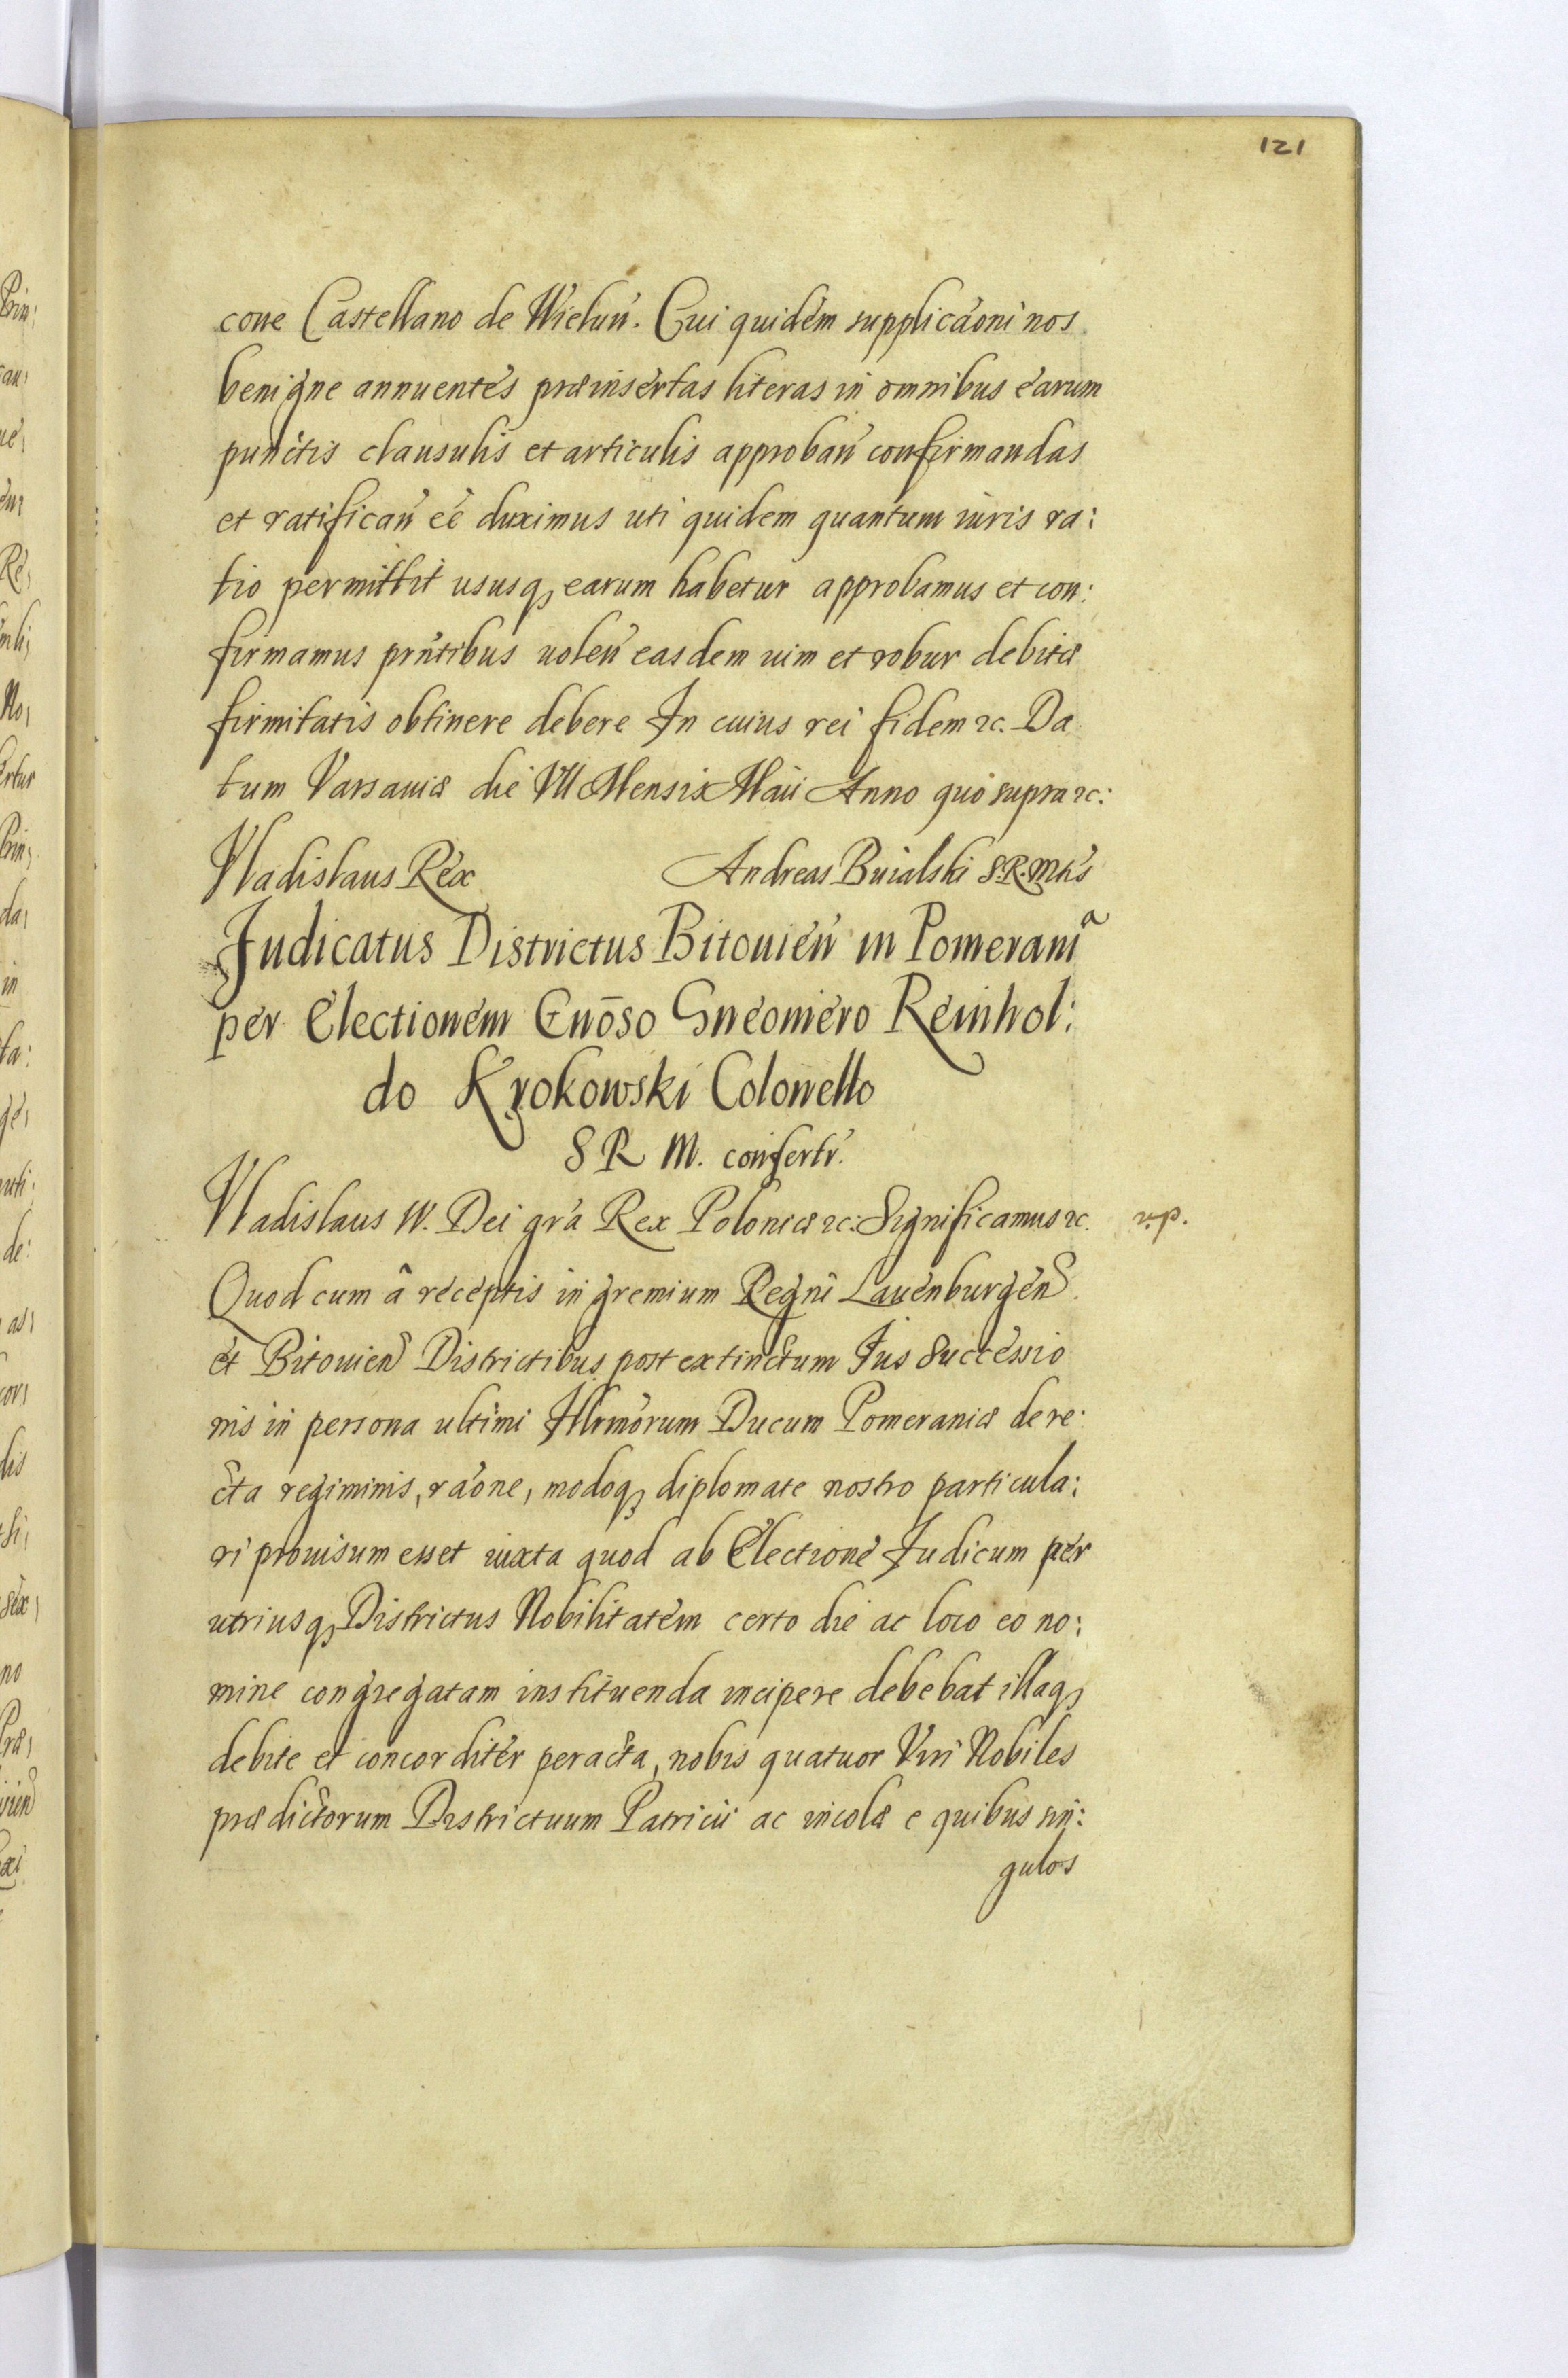 121
cone Castellano de Wieluń. Cui quidem supplicaoni nos
benigne annuentes præinsertas literas in omnibus earum
punctis clausulis et articulis approbań confirmandas
et ratificań eé duximus uti quidem quantum iuris ra:
tio permittit ususq, earum habetur approbamus et con:
firmamus pñtibus uoleń easdem uim et robur debitæ
firmitatis obtinere debere In cuius rei fidem ꝛc. Da
tum Varsauiæ die VII Mensis Maii Anno quo supra ꝛc:
Vladislaus Rex Andreas Buialski S.R.Mtis
Judicatus Districtus Bitouień in Pomerania
per Electionem Gnōso Gneomero Reinhol:
do Krokowski Colonello
S R M. confertr.
Vladislaus IV. Dei gra Rex Poloniæ ꝛc: Significamus ꝛc.
Quod cum â receptis in gremium Regni Lauenburgen
et Bitouien Districtibus post extinctum Jus Successio
nis in persona ultimi Illrmorum Ducum Pomeraniæ de re:
cta regiminis, raone, modoq, diplomate nostro particula:
ri prouisum esset iuxta quod ab Electione Judicum per
utriusq, Districtus Nobilitatem certo die ac loco eo no:
mine congregatam instituenda incipere debebat illaq,
debite et concorditer peracta, nobis quatuor Viri Nobiles
prædictorum Districtuum Patricii ac incolæ e quibus sin:
gulos